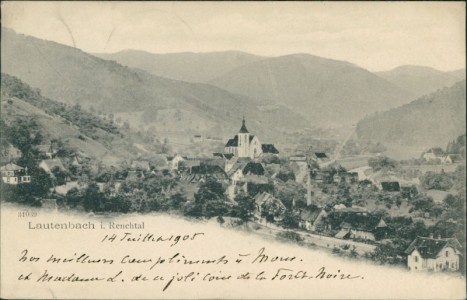 31039
Lautenbach i. Renchtal
14 Juillet 1905
Nos meilleurs compliments à Mons.
et Madame d. de ce joli coin de la Forêt-Noire